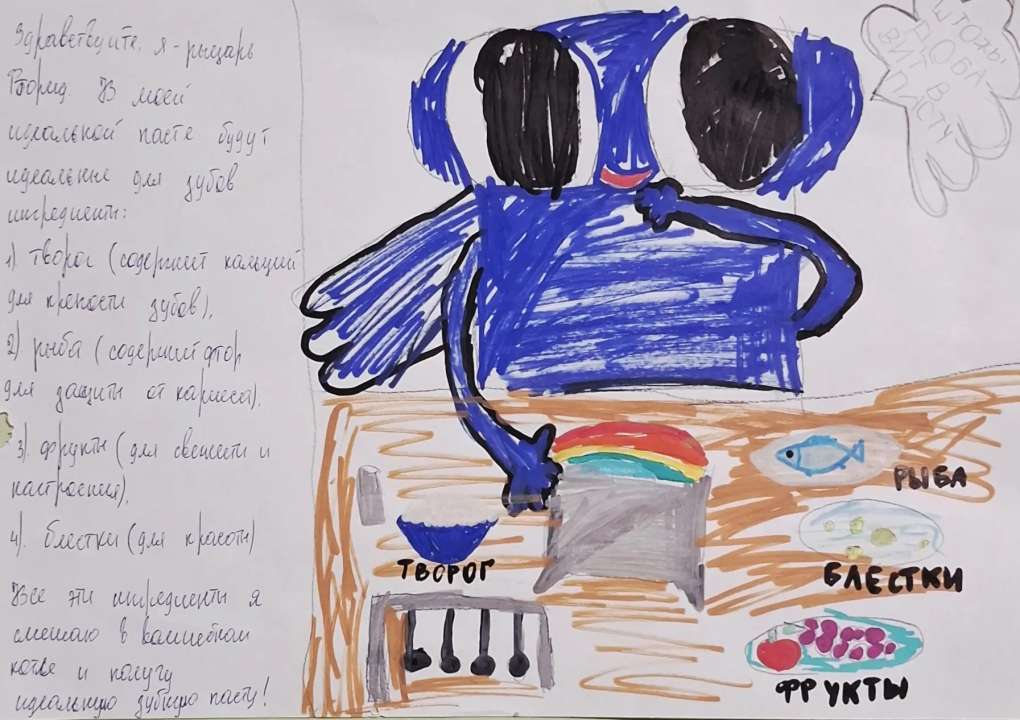 Здравствуйте, я - рыцарь
Фторид. В моей
идеальной пасте будут
идеальные для зубов
ингредиенты:
1) творог (содержит кальций
для крепости зубов),
2) рыба (содержит фтор
для защиты от кариеса).
3) фрукты (для свежести и
настроения),
4). блестки (для красоты)
Все эти ингредиенты я
смешаю в волшебном
котле и получу
идеальную зубную пасту!
ЧТО-ЖЫ
В
ПАСТУ
ТВОРОГ
РЫБА
БЛЕСТКИ
ФРУКТЫ